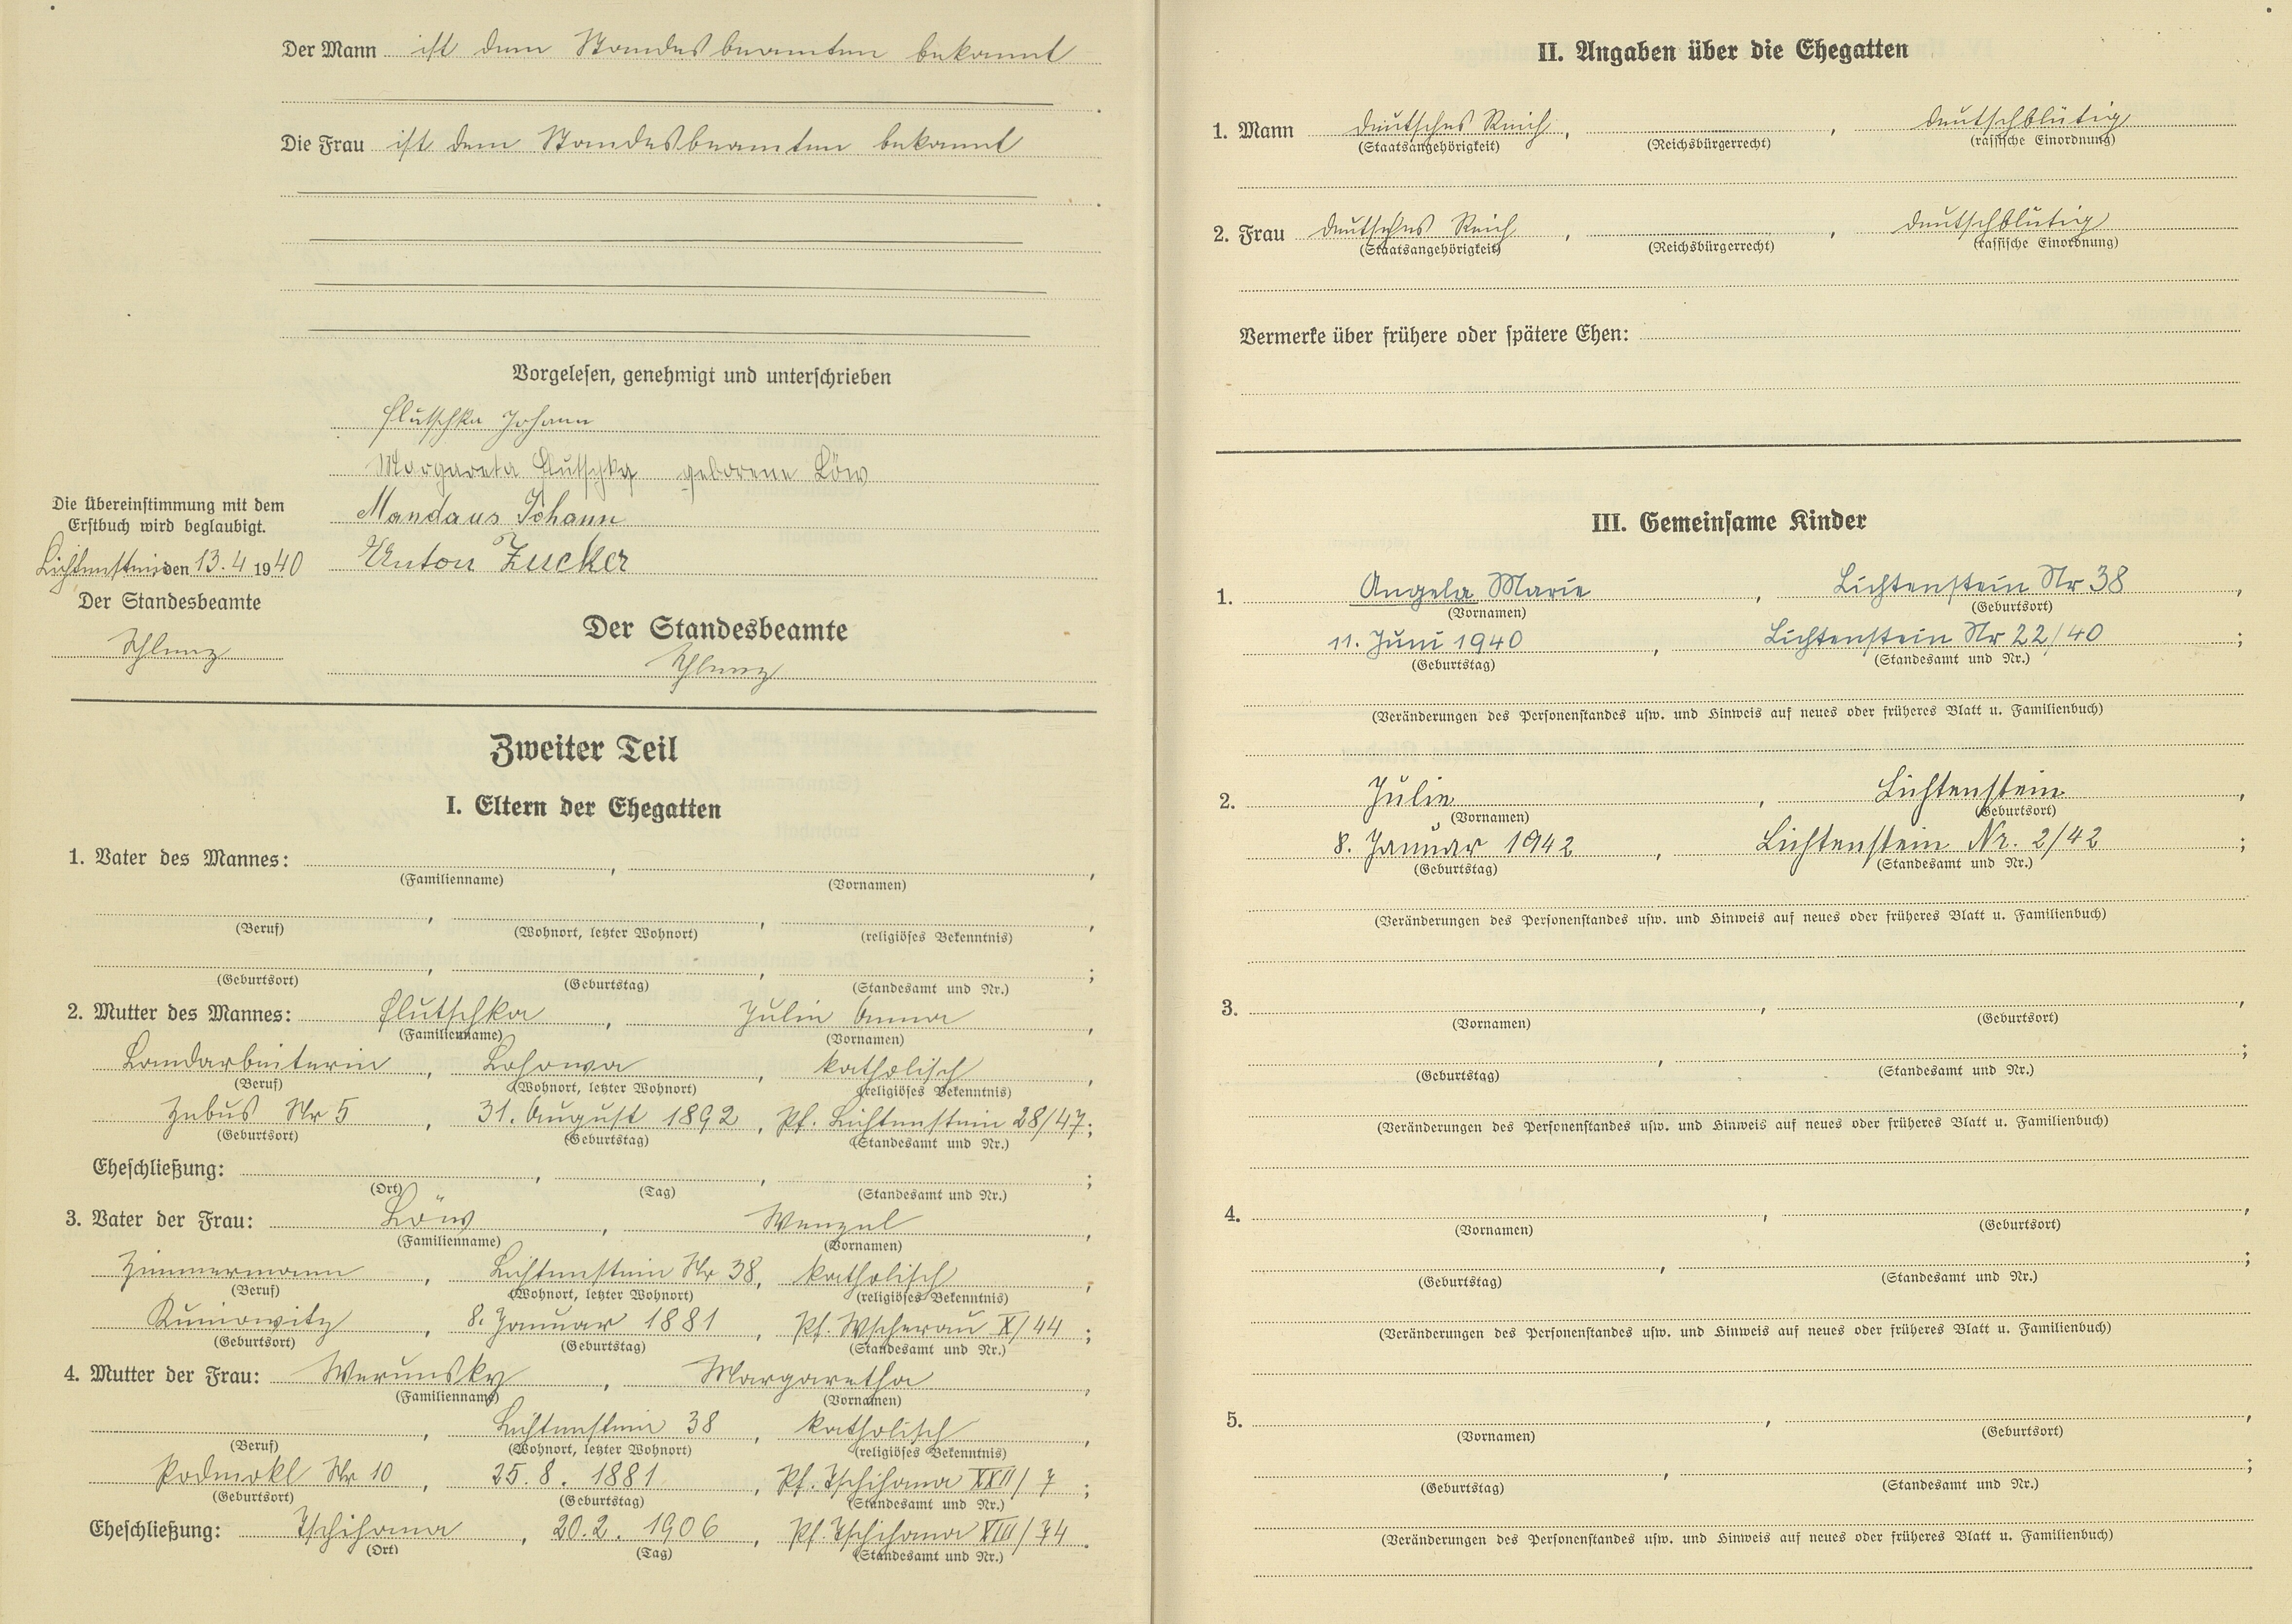 Der Mann ist dem Standesbeamten bekannt
Die Frau ist dem Standesbeamten bekannt
Vorgelesen, genehmigt und unterschrieben
Hlutschka Johann
Margareta Hlutschka geborene Löw
Mandaus Johann
Anton Zucker
Die Übereinstimmung mit dem
Erstbuch wird beglaubigt.
Lichtenstein den 13.4 1940
Der Standesbeamte
Schlenz
Der Standesbeamte
Schlenz
Zweiter Teil
I. Eltern der Ehegatten
1. Vater des Mannes: , ,
(Familienname) (Vornamen)
, , ,
(Beruf) (Wohnort, letzter Wohnort) (religiöses Bekenntnis)
, , ;
(Geburtsort) (Geburtstag) (Standesamt und Nr.)
2. Mutter des Mannes: Hlutschka , Julie Anna ,
(Familienname) (Vornamen)
Landarbeiterin , Lohowa , katholisch ,
(Beruf) (Wohnort, letzter Wohnort) (religiöses Bekenntnis)
Zebus Nr 5 , 31. August 1892 , Pf. Lichtenstein 28/47 ;
(Geburtsort) (Geburtstag) (Standesamt und Nr.)
Eheschließung: , , ;
(Ort) (Tag) (Standesamt und Nr.)
3. Vater der Frau: Löw , Wenzel ,
(Familienname) (Vornamen)
Zimmermann , Lichtenstein Nr 38, katholisch ,
(Beruf) (Wohnort, letzter Wohnort) (religiöses Bekenntnis)
Kuniowitz , 8. Januar 1881 , Pf. Wscherau X/44 ;
(Geburtsort) (Geburtstag) (Standesamt und Nr.)
4. Mutter der Frau: Werunsky , Margaretha ,
(Familienname) (Vornamen)
, Lichtenstein 38 , katholisch ,
(Beruf) (Wohnort, letzter Wohnort) (religiöses Bekenntnis)
Podmokl Nr 10 , 25.8. 1881 , Pf. Tschihana XXII/7 ;
(Geburtsort) (Geburtstag) (Standesamt und Nr.)
Eheschließung: Tschihana , 20.2. 1906 , Pf. Tschihana VIII/74 .
(Ort) (Tag) (Standesamt und Nr.)
II. Angaben über die Ehegatten
1. Mann deutsches Reich , , deutschblütig
(Staatsangehörigkeit) (Reichsbürgerrecht) (rassische Einordnung)
2. Frau deutsches Reich , , deutschblütig
(Staatsangehörigkeit) (Reichsbürgerrecht) (rassische Einordnung)
Vermerke über frühere oder spätere Ehen:
III. Gemeinsame Kinder
1. Angela Marie , Lichtenstein Nr 38 ,
(Vornamen) (Geburtsort)
11. Juni 1940 , Lichtenstein Nr 22/40 ;
(Geburtstag) (Standesamt und Nr.)
(Veränderungen des Personenstandes usw. und Hinweis auf neues oder früheres Blatt u. Familienbuch)
2. Julie , Lichtenstein ,
(Vornamen) (Geburtsort)
8. Januar 1942 , Lichtenstein Nr. 2/42 ;
(Geburtstag) (Standesamt und Nr.)
(Veränderungen des Personenstandes usw. und Hinweis auf neues oder früheres Blatt u. Familienbuch)
3. , ,
(Vornamen) (Geburtsort)
, ;
(Geburtstag) (Standesamt und Nr.)
(Veränderungen des Personenstandes usw. und Hinweis auf neues oder früheres Blatt u. Familienbuch)
4. , ,
(Vornamen) (Geburtsort)
, ;
(Geburtstag) (Standesamt und Nr.)
(Veränderungen des Personenstandes usw. und Hinweis auf neues oder früheres Blatt u. Familienbuch)
5. , ,
(Vornamen) (Geburtsort)
, ;
(Geburtstag) (Standesamt und Nr.)
(Veränderungen des Personenstandes usw. und Hinweis auf neues oder früheres Blatt u. Familienbuch)